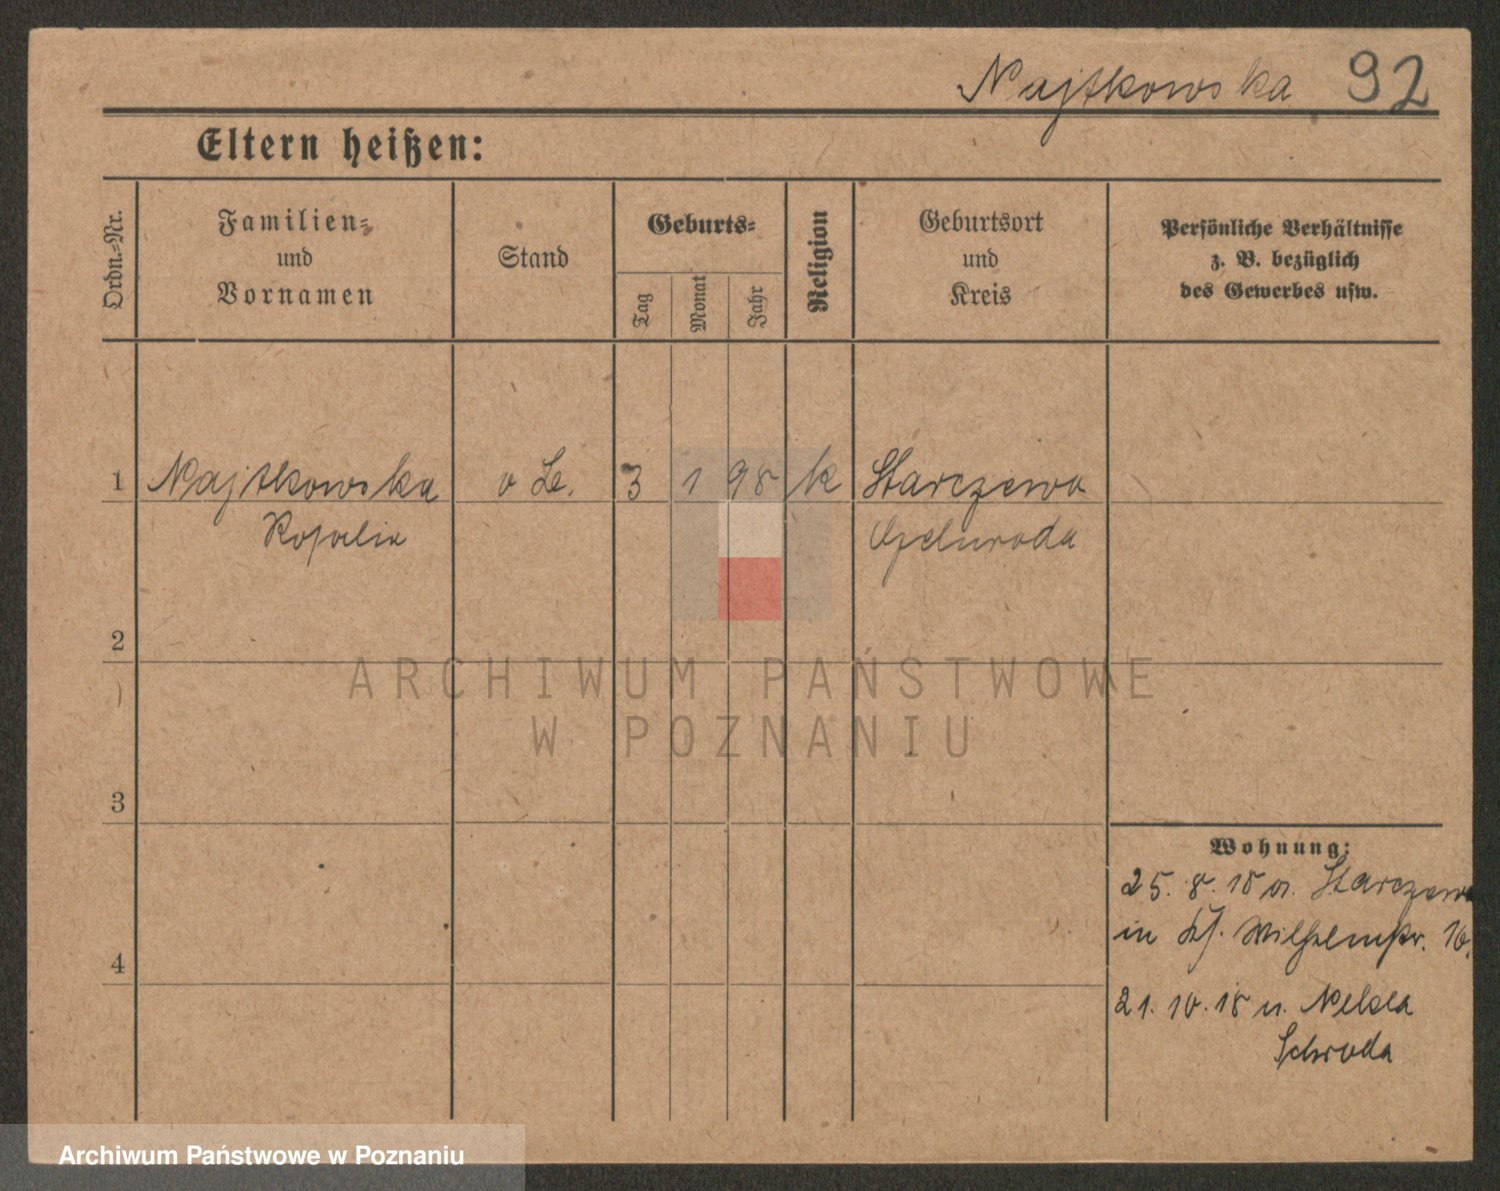 Najtkowska 92
Eltern heißen:
Ordn.-Nr.
Familien-
und
Vornamen
Stand
Geburts-
Tag
Monat
Jahr
Religion
Geburtsort
und
Kreis
Persönliche Verhältnisse
z. B. bezüglich
des Gewerbes usw.
1 Najtkowska o Le. 3 1 98 k Starczewo
Rosalia Schroda
2
3
4
Wohnung:
25. 8. 18 v. Starczewo
in Wilhelmstr. 16.
21. 10. 18 n. Nekla
Schroda
ARCHIWUM PAŃSTWOWE
W POZNANIU
Archiwum Państwowe w Poznaniu